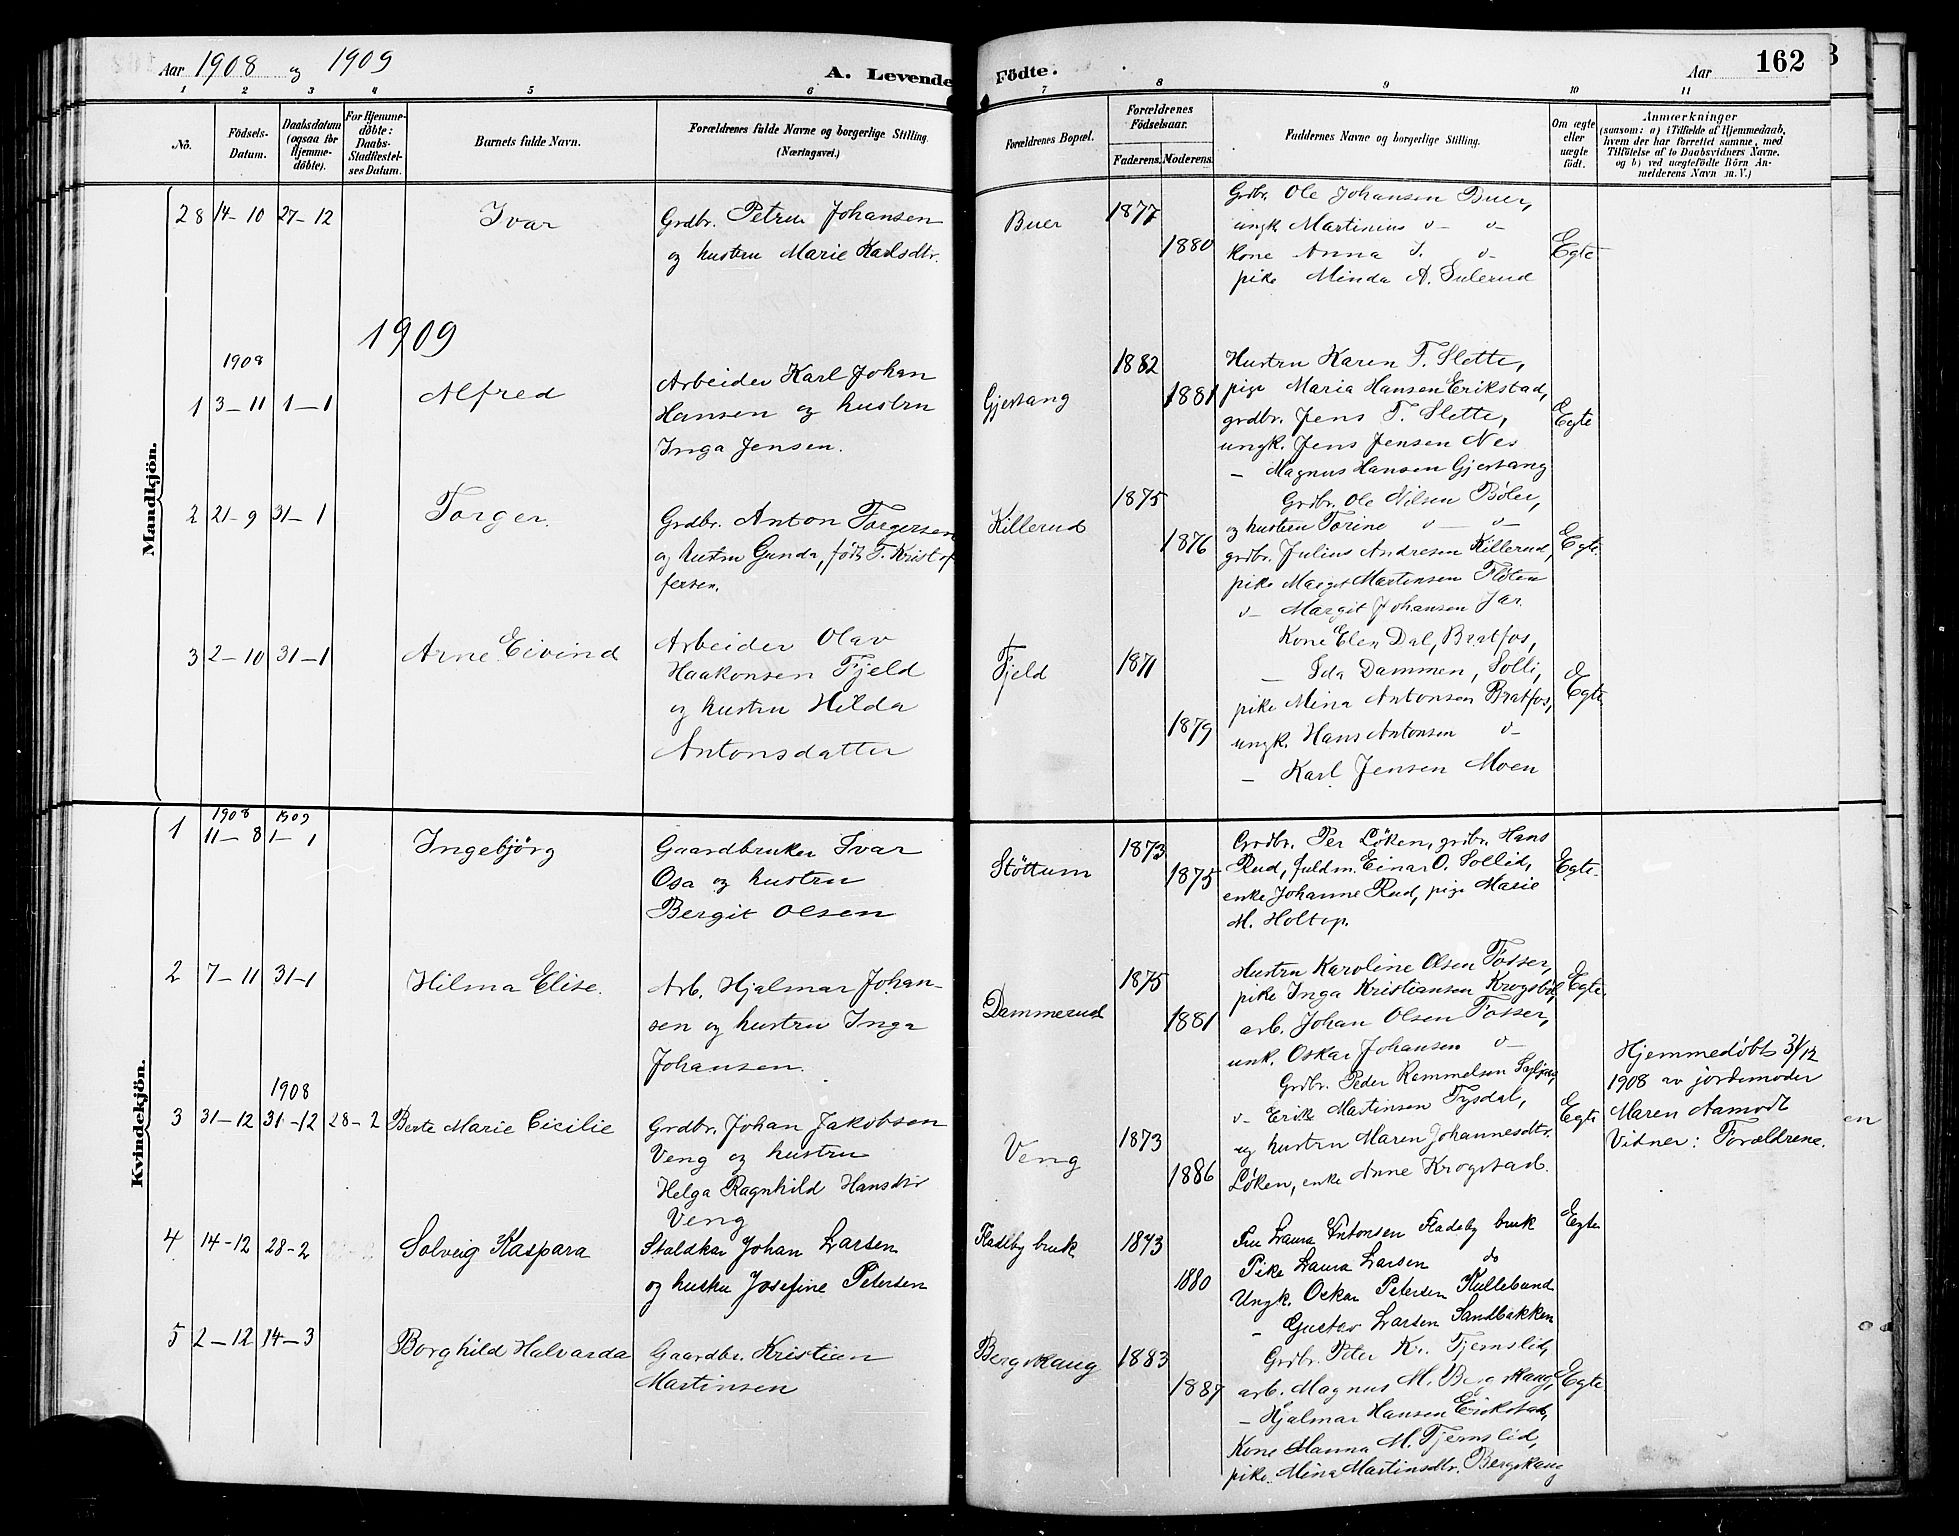 Aar 1908 og 1909
A. Levende Födte.
Aar 162
1 2 3 4 5 6 7 8 9 10 11
No.
Födsels-Datum.
Daabsdatum (ogsaa for Hjemmedöbte).
For Hjemmedöbte: Daabs-Stadfæstelses Datum.
Barnets fulde Navn.
Forældrenes fulde Navne og borgerlige Stilling.
(Næringsvei.)
Forældrenes Bopæl.
Forældrenes Födselsaar.
Faderens. Moderens.
Faddernes Navne og borgerlige Stilling.
Om ægte eller uægte födt.
Anmærkninger
(saasom: a) i Tilfælde af Hjemmedaab,
hvem der har forrettet samme, med
Tilföielse af to Daabsvidners Navne.
og b) ved uægtefödte Börn An-
melderens Navn m. V.)
Mandkjön.
28 14-10 27-12 Ivar
Grdbr. Petrus Johansen
og hustru Marie Karlsdtr.
Buer 1877 1880
Grdbr. Ole Johansen Buer,
ungk. Martinius v- v-
kone Anna J. v-
pike Minda A. Sulerud
Egte
1909
1908
1 3-11 1-1 Alfred
Arbeider Karl Johan
Hansen og hustru
Inga Jensen.
Gjersang 1882 1881
Hustru Karen T. Slette,
pige Maria Hansen Erikstad,
grdbr. Jens T. Slette,
ungk. Jens Jensen Nes
- Magnus Hansen Gjersang
Egte
2 21-9 31-1 Torger.
Grdbr. Anton Torgersen
og hustru Gunda, född T. Kristof
fersen.
Killerud 1875 1876
Grdbr. Ole Nilsen Böler,
og hustru Torine v- v-
grdbr. Julius Andresen Killerud,
pike Margit Martinsen Flöten
v- Margit Johansen Jar.
Egte.
3 2-10 31-1 Arne Eivind
Arbeider Olav
Haakonsen Fjeld
og hustru Hilda
Antonsdatter
Fjeld 1871 1879
Kone Elen Dal, Bratfos,
- Ida Dammen, Solli,
pike Mina Antonsen Bratfos,
ungk. Hans Antonsen v-
- Karl Jensen Moen
Egte
Kvindekjön.
1908 1909
1 11-8 1-1 Ingebjörg
Gaardbruker Ivar
Osa og hustru
Bergit Olsen
Stöttum 1873 1875
Grdbr. Per Löken, grdbr. Hans
Rud, fuldm. Einar O. Sollid,
enke Johanne Rud, pige Marie
M. Holtop.
Egte.
2 7-11 31-1 Hilma Elise.
Arb. Hjalmar Johan-
sen og hustru Inga
Johansen.
Dammerud 1875 1881
Hustru Karoline Olsen Tosser,
pike Inga Kristiansen Krogsböl,
arb. Johan Olsen Tosser,
unk. Oskar Johansen v-
Egte.
1908
3 31-12 31-12 28-2 Berte Marie Cicilie
Grdbr. Johan Jakobsen
Veng og hustru
Helga Ragnhild Hansdtr
Veng
Veng 1873 1886
Grdbr. Peder Remmelsen
v- Erik Martinsen Tysdal,
og hustru Maren Johannesdtr.
Löken, enke Anne Krogstad.
Egte
Hjemmedöbt 31/12
1908 av jordemoder
Maren Aamodt
Vidner: Forældrene.
en
4 14-12 28-2 Solveig Kaspara
Staldkar Johan Larsen
og hustru Josefine Petersen
Fladeby bruk 1873 1880
Fru Laura Antonsen Fladeby bruk
Pike Laura Larsen do
Ungk. Oskar Petersen Kullebund
- Gustav Larsen Sandbakken
Egte
5 2-12 14-3 Borghild Halvarda
Gaardbr. Kristian
Martinsen
Bergskaug 1883 1887
Grdbr. Peter Kr. Tjernslid,
arb. Magnus M. Bergskaug,
- Hjalmar Hansen Erikstad,
Kone Hanna M. Tjernslid,
pike. Mina Martinsdtr. Bergskaug
Egte